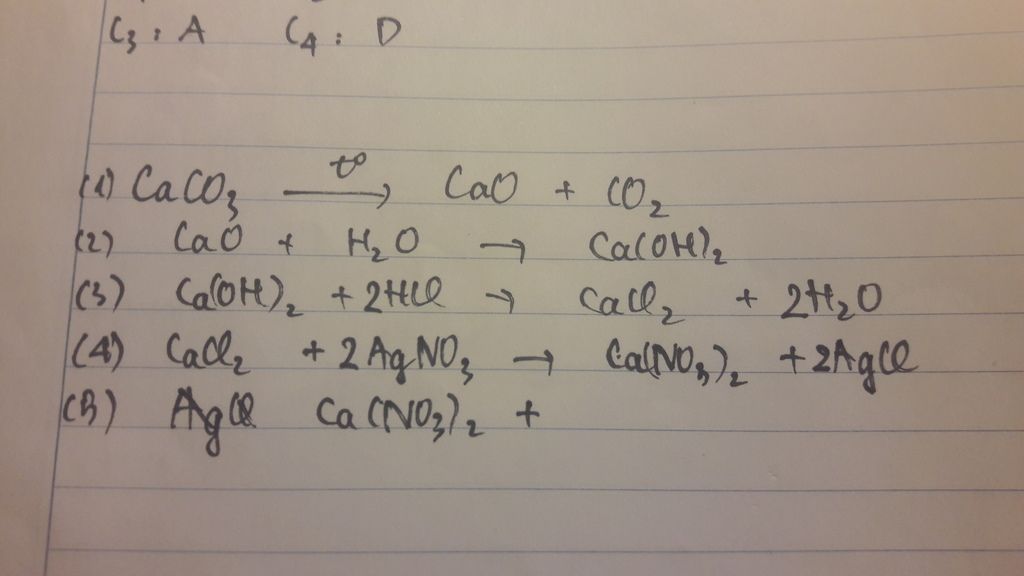 C₃ : A C₄ : D
(1) CaCO₃ —t°→ CaO + CO₂
(2) CaO + H₂O → Ca(OH)₂
(3) Ca(OH)₂ + 2HCl → CaCl₂ + 2H₂O
(4) CaCl₂ + 2AgNO₃ → Ca(NO₃)₂ + 2AgCl
(5) AgCl Ca(NO₃)₂ +